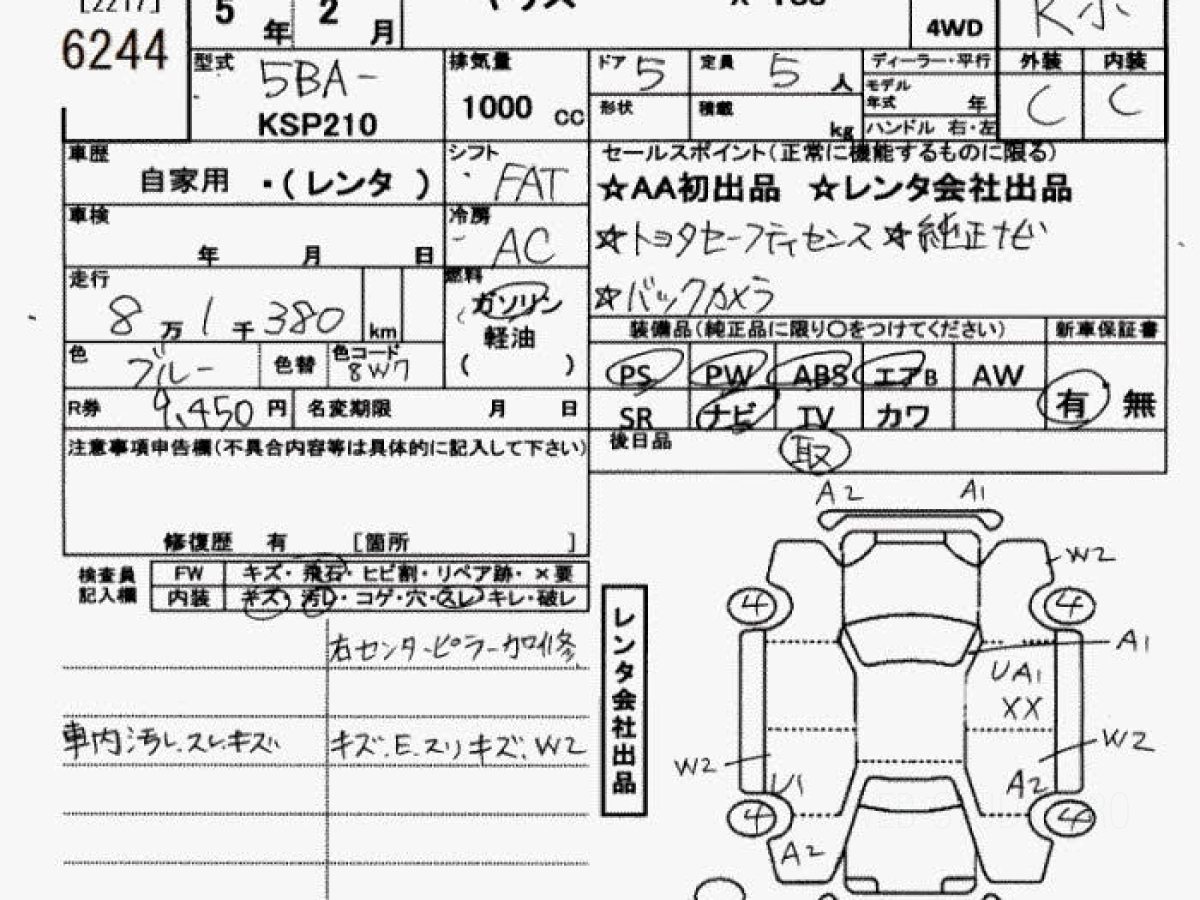 [2217]
6244
5 年 2 月
4WD
型式 5BA-
KSP210
排気量
1000 cc
ドア 5
定員 5 人
形状
積載 kg
ディーラー・平行
モデル年式 年
ハンドル 右・左
外装 内装
C C
車歴
自家用 ・(レンタ )
シフト
FAT
セールスポイント(正常に機能するものに限る)
☆AA初出品 ☆レンタ会社出品
☆トヨタセーフティセンス ☆純正ナビ
☆バックカメラ
車検
年 月 日
冷房
AC
走行
8万1千380 km
燃料
ガソリン
軽油
( )
色 ブルー
色替
色コード
8W7
R券 9,450 円
名変期限 月 日
装備品(純正品に限り〇をつけてください)
新車保証書
PS PW ABS エアB AW
SR ナビ TV カワ
有 無
後日品
取
注意事項申告欄(不具合内容等は具体的に記入して下さい)
修復歴 有 [箇所 ]
検査員
記入欄
FW キズ・飛石・ヒビ割・リペア跡・×要
内装 キズ・汚レ・コゲ・穴・スレ・キレ・破レ
右センターピラー加修
車内汚レ.スレ.キズ
キズ.E.スリキズ.W2
レンタ会社出品
A2 A1
W2
4 4
A1
UA1
XX
W2
W2
U1
A2
4 4
A2